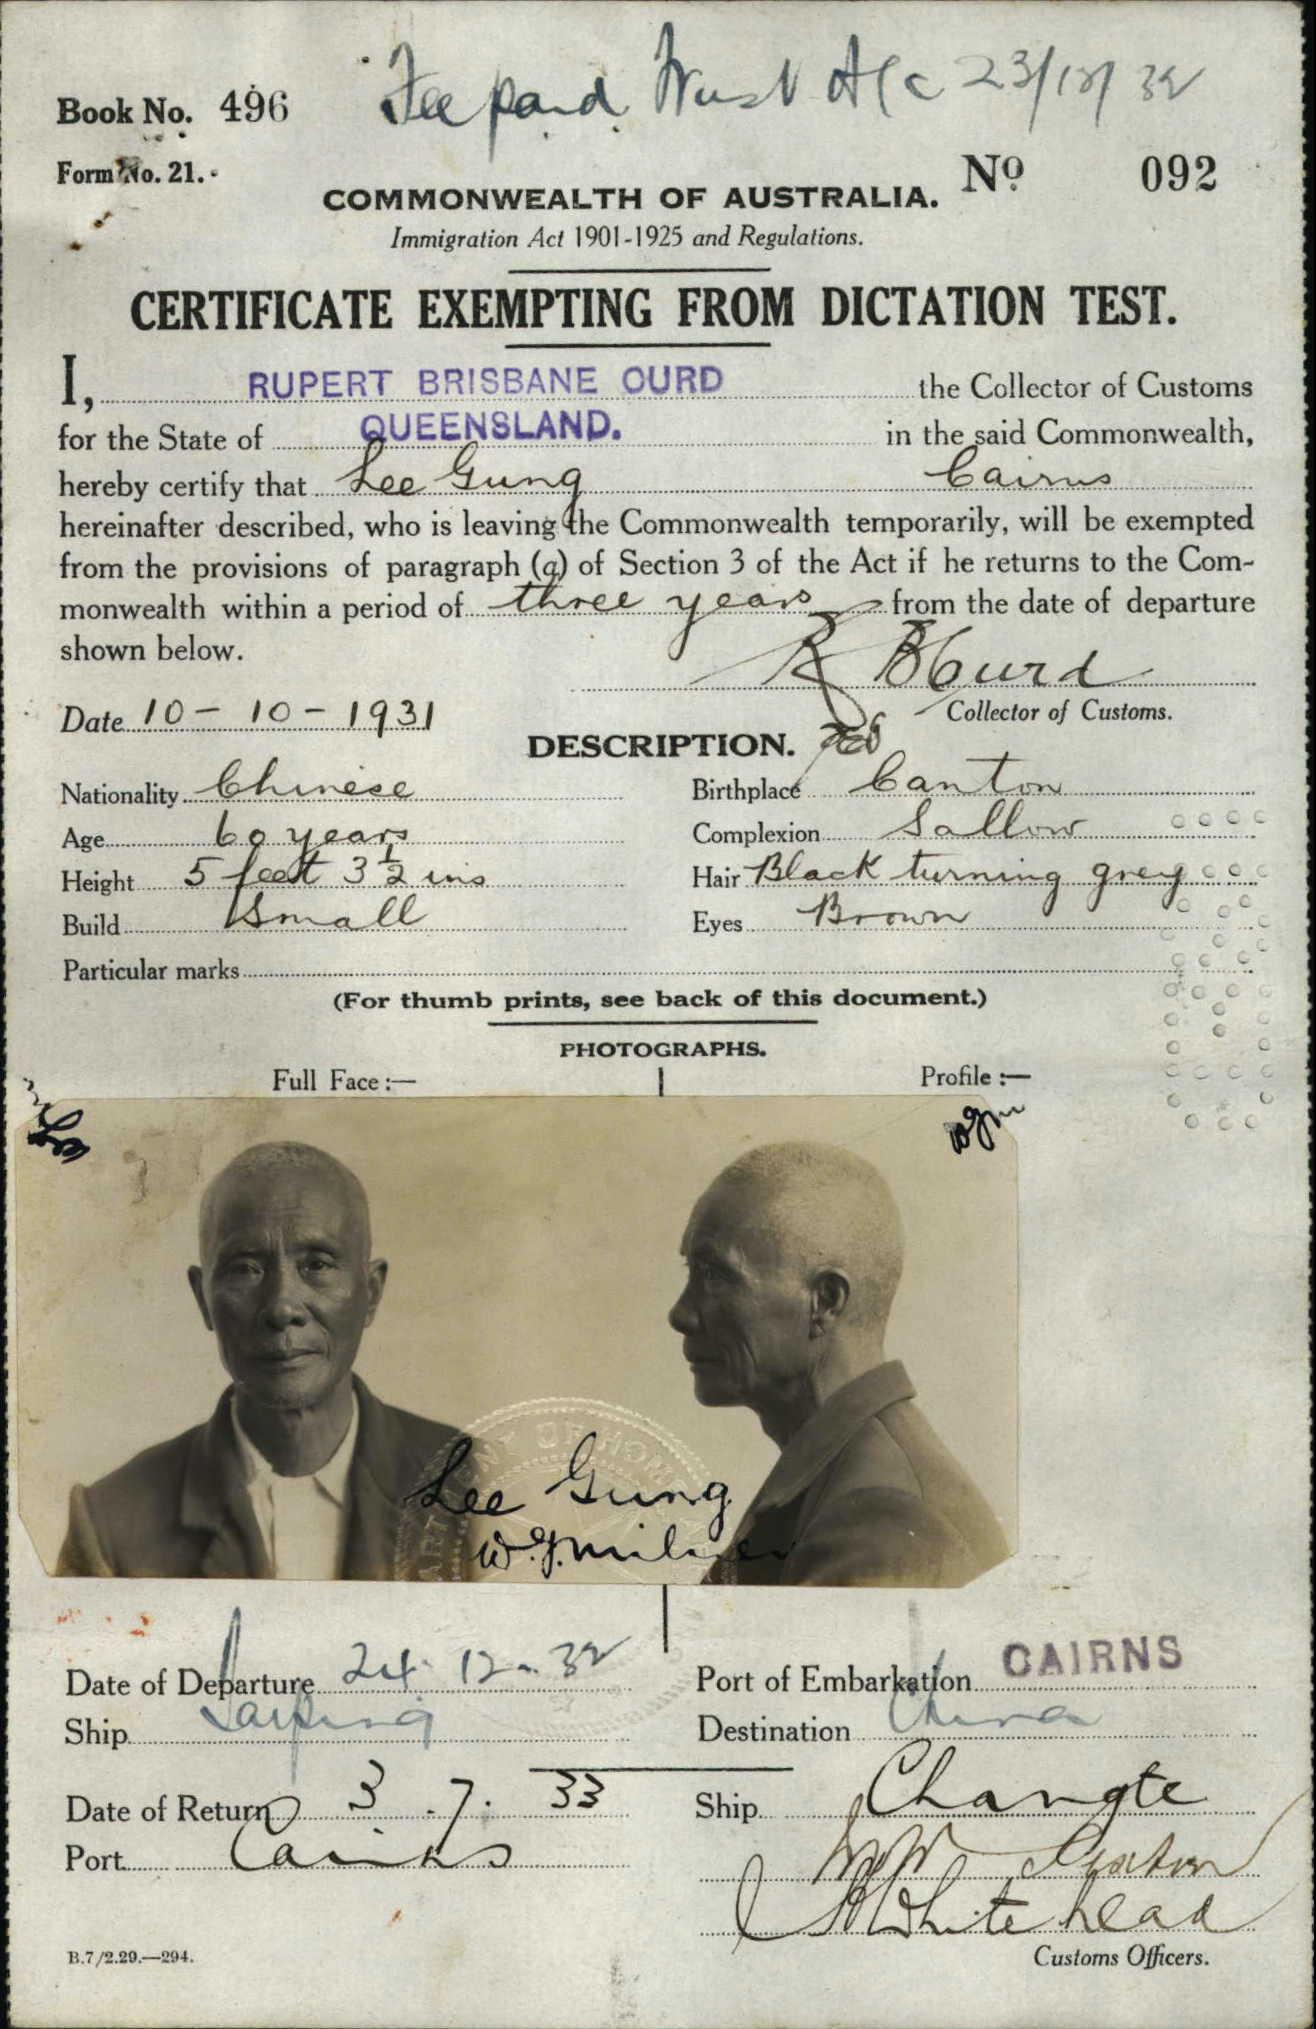 Fee paid Trust A/c 23/12/32
Book No. 496
Form No. 21.
COMMONWEALTH OF AUSTRALIA. No. 092
Immigration Act 1901-1925 and Regulations.
CERTIFICATE EXEMPTING FROM DICTATION TEST.
I, RUPERT BRISBANE CURD the Collector of Customs
for the State of QUEENSLAND. in the said Commonwealth,
hereby certify that Lee Gung Cairns
hereinafter described, who is leaving the Commonwealth temporarily, will be exempted
from the provisions of paragraph (a) of Section 3 of the Act if he returns to the Com-
monwealth within a period of three years from the date of departure
shown below.
R B Curd
Date 10 - 10 - 1931 Collector of Customs.
DESCRIPTION.
Nationality Chinese Birthplace Canton
Age 60 years Complexion Sallow
Height 5 feet 3 1/2 ins Hair Black turning grey
Build Small Eyes Brown
Particular marks
(For thumb prints, see back of this document.)
PHOTOGRAPHS.
Full Face :— Profile :—
WJM
Lee Gung
W.J. Milner
Date of Departure 24. 12. 32 Port of Embarkation CAIRNS
Ship Taiping Destination China
Date of Return 3 . 7. 33 Ship Changte
Port Cairns
Whitehead
B.7/2.29.—294. Customs Officers.